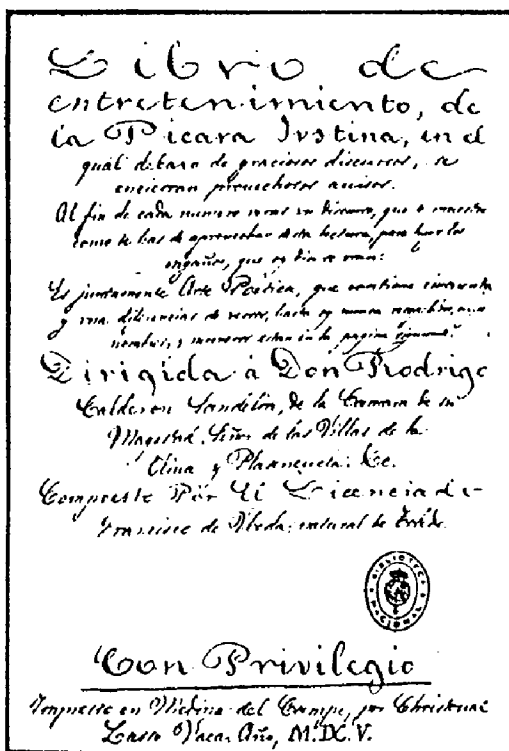 Libro de
entretenimiento, de
la Picara Ivstina, en el
qual debaxo de graciosos discursos, se
encierran prouechosos auisos.
Al fin de cada numero veras vn discurso, que te muestra
como te has de aprouechar desta lectura, para huyr los
engaños, que oy dia se vsan:
Es juntamente Arte Poetica, que contiene cincuenta
y vna diferencias de versos, hasta oy nunca recopilados, cuyos
nombres, y numeros estan en la pagina siguiente.
Dirigida á Don Rodrigo
Calderon Sandelin, de la Camara de su
Magestad. Señor de las Villas de la
Oliua y Plasençuela. &c.
Compuesto Por El Licenciado
Francisco de Vbeda, natural de Toledo.
BIBLIOTECA NACIONAL
Con Privilegio
Impresso en Medina del Campo, por Christoual
Lasso Vaca. Año, M.DC.V.